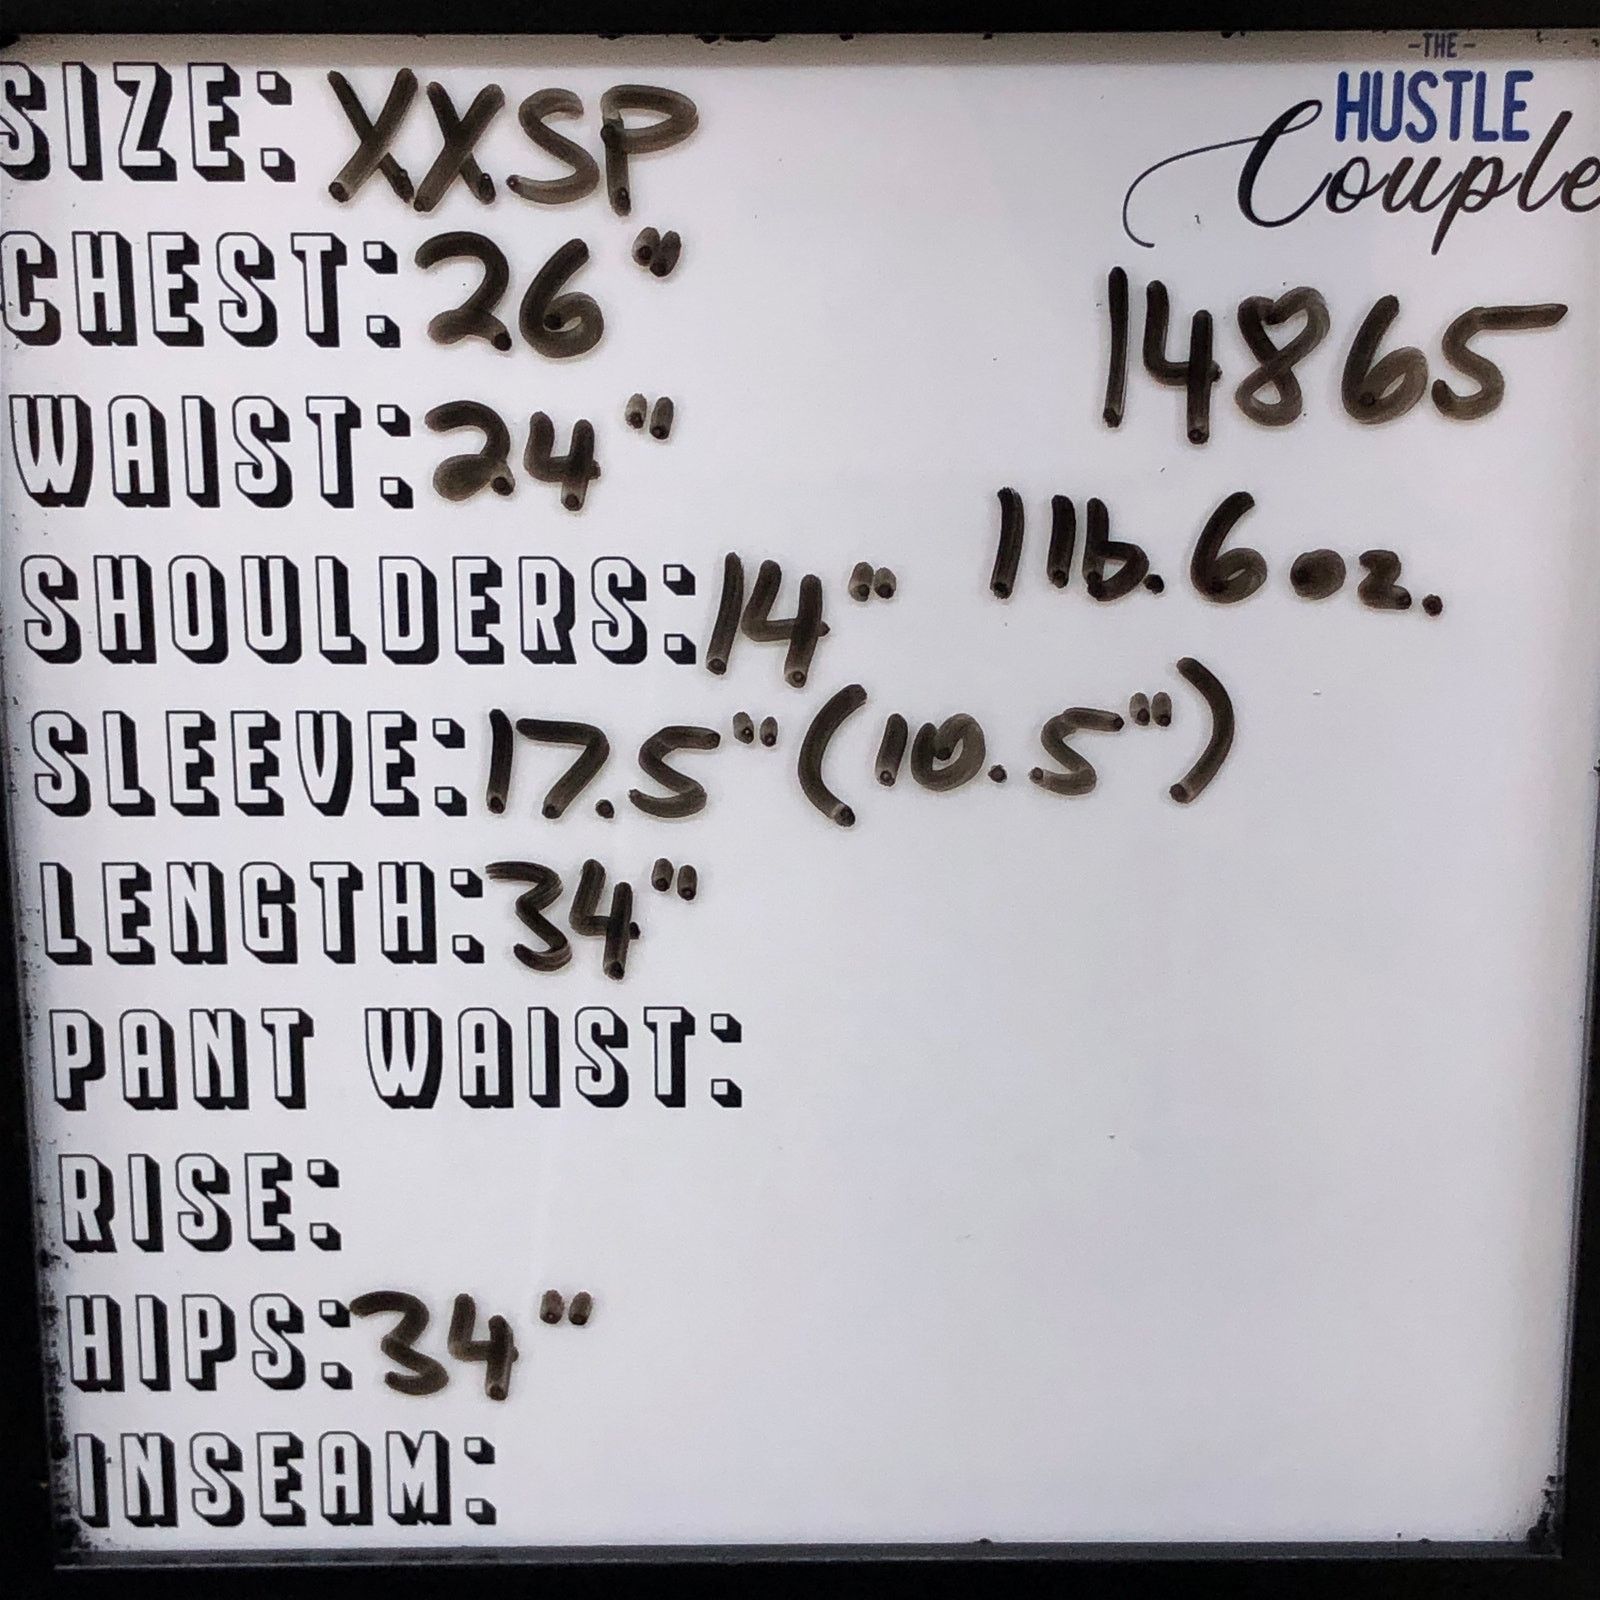 -THE-
HUSTLE
Couple
SIZE: XXSP
CHEST: 26"
14865
WAIST: 24"
SHOULDERS: 14"
1 lb. 6 oz.
SLEEVE: 17.5" (10.5")
LENGTH: 34"
PANT WAIST:
RISE:
HIPS: 34"
INSEAM: